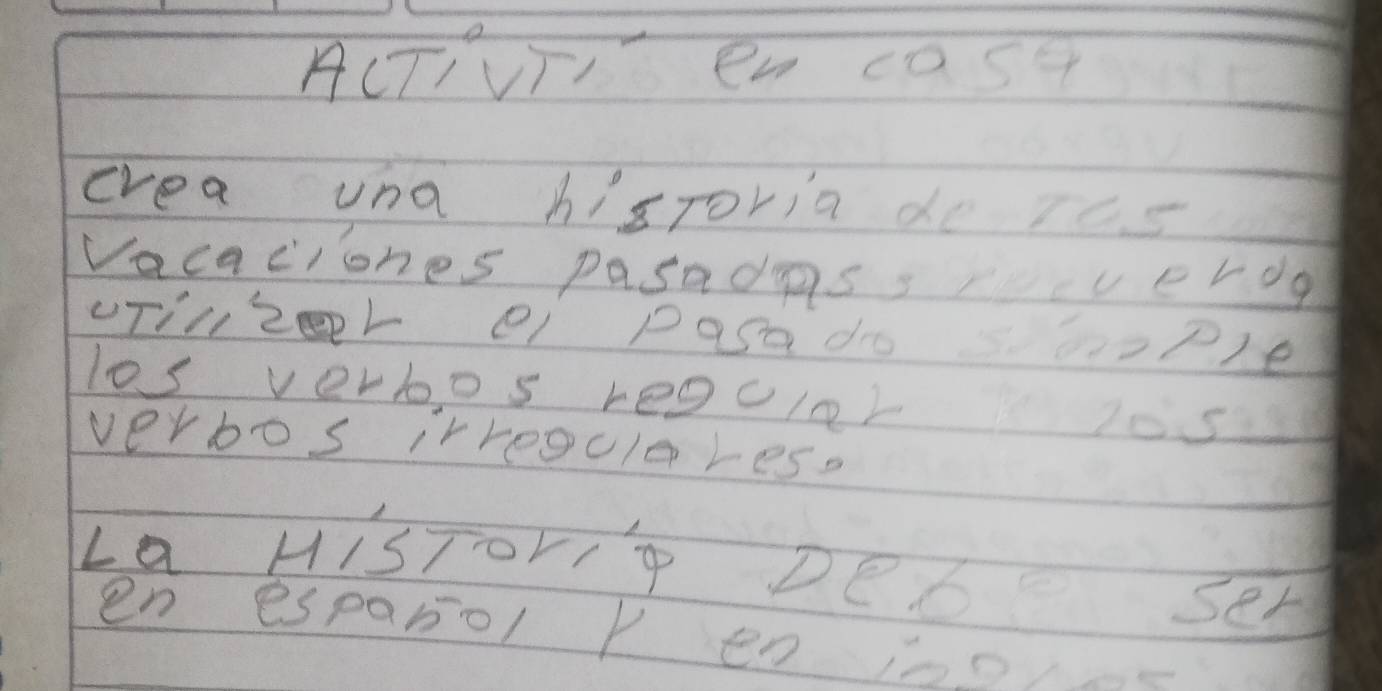 ACTiVTi en casa
crea una hisToria de TUS
Vacaciones pasadas, recuerda
UTilizar el Pasado simple
los verbos regular los
verbos irregulares.
La HISToria Debe ser
en español y en ingles